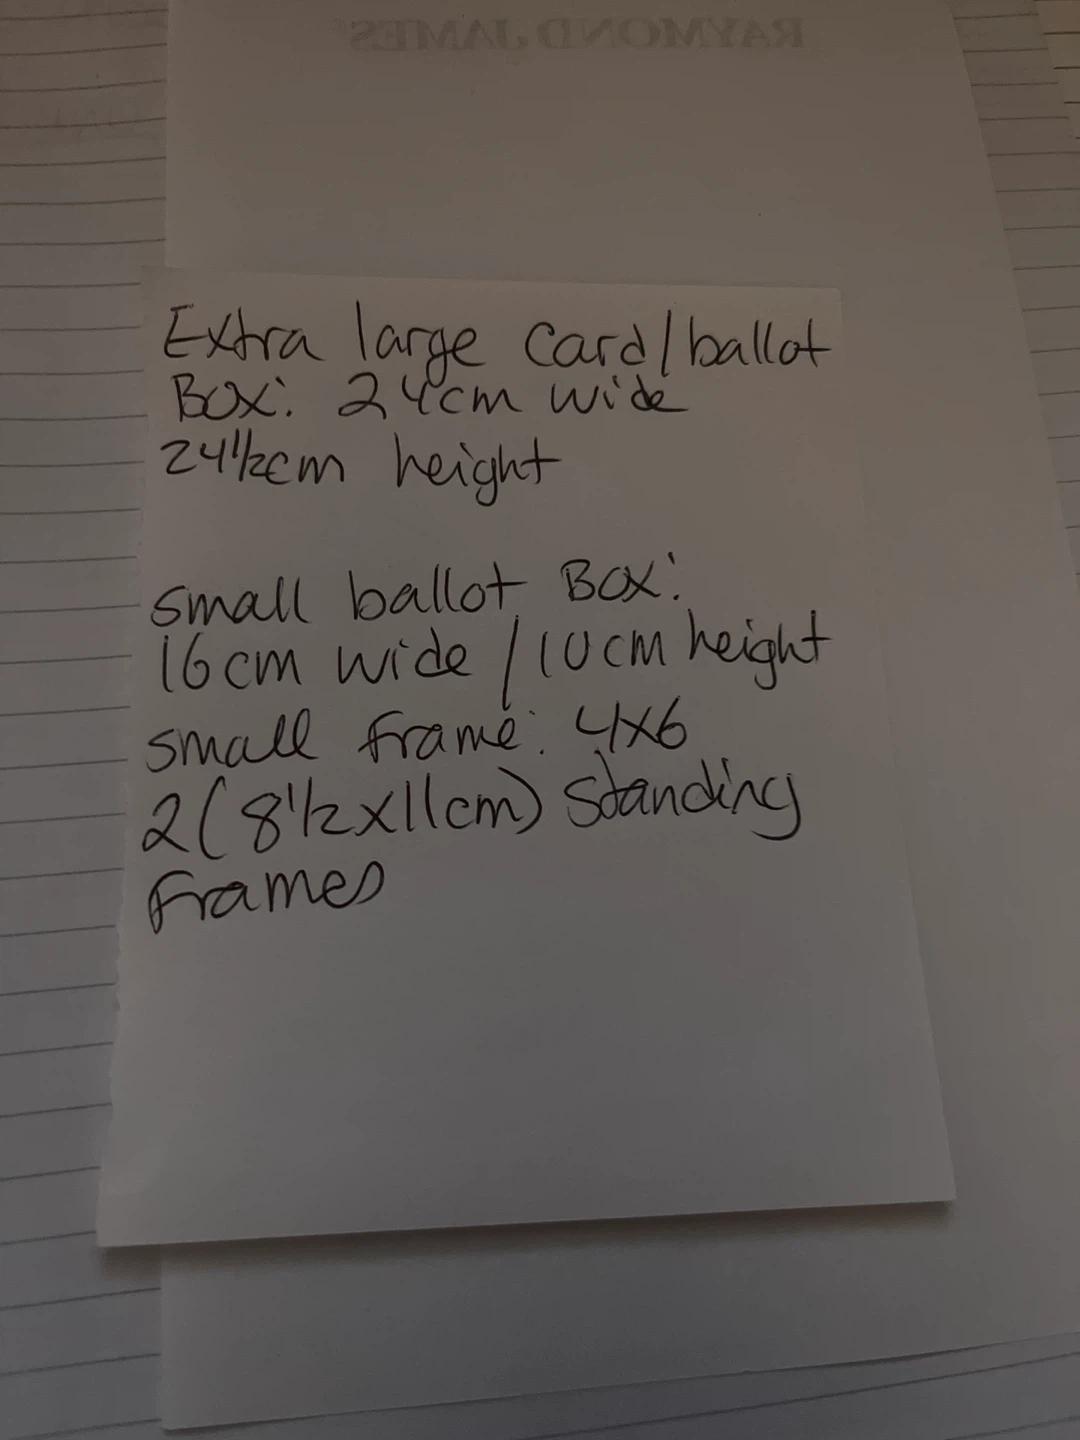 RAYMOND JAMES®
Extra large Card/ballot
Box: 24cm wide
24 1/2cm height
small ballot Box:
16cm wide / 10cm height
small frame: 4x6
2(8 1/2 x 11cm) Standing
Frames